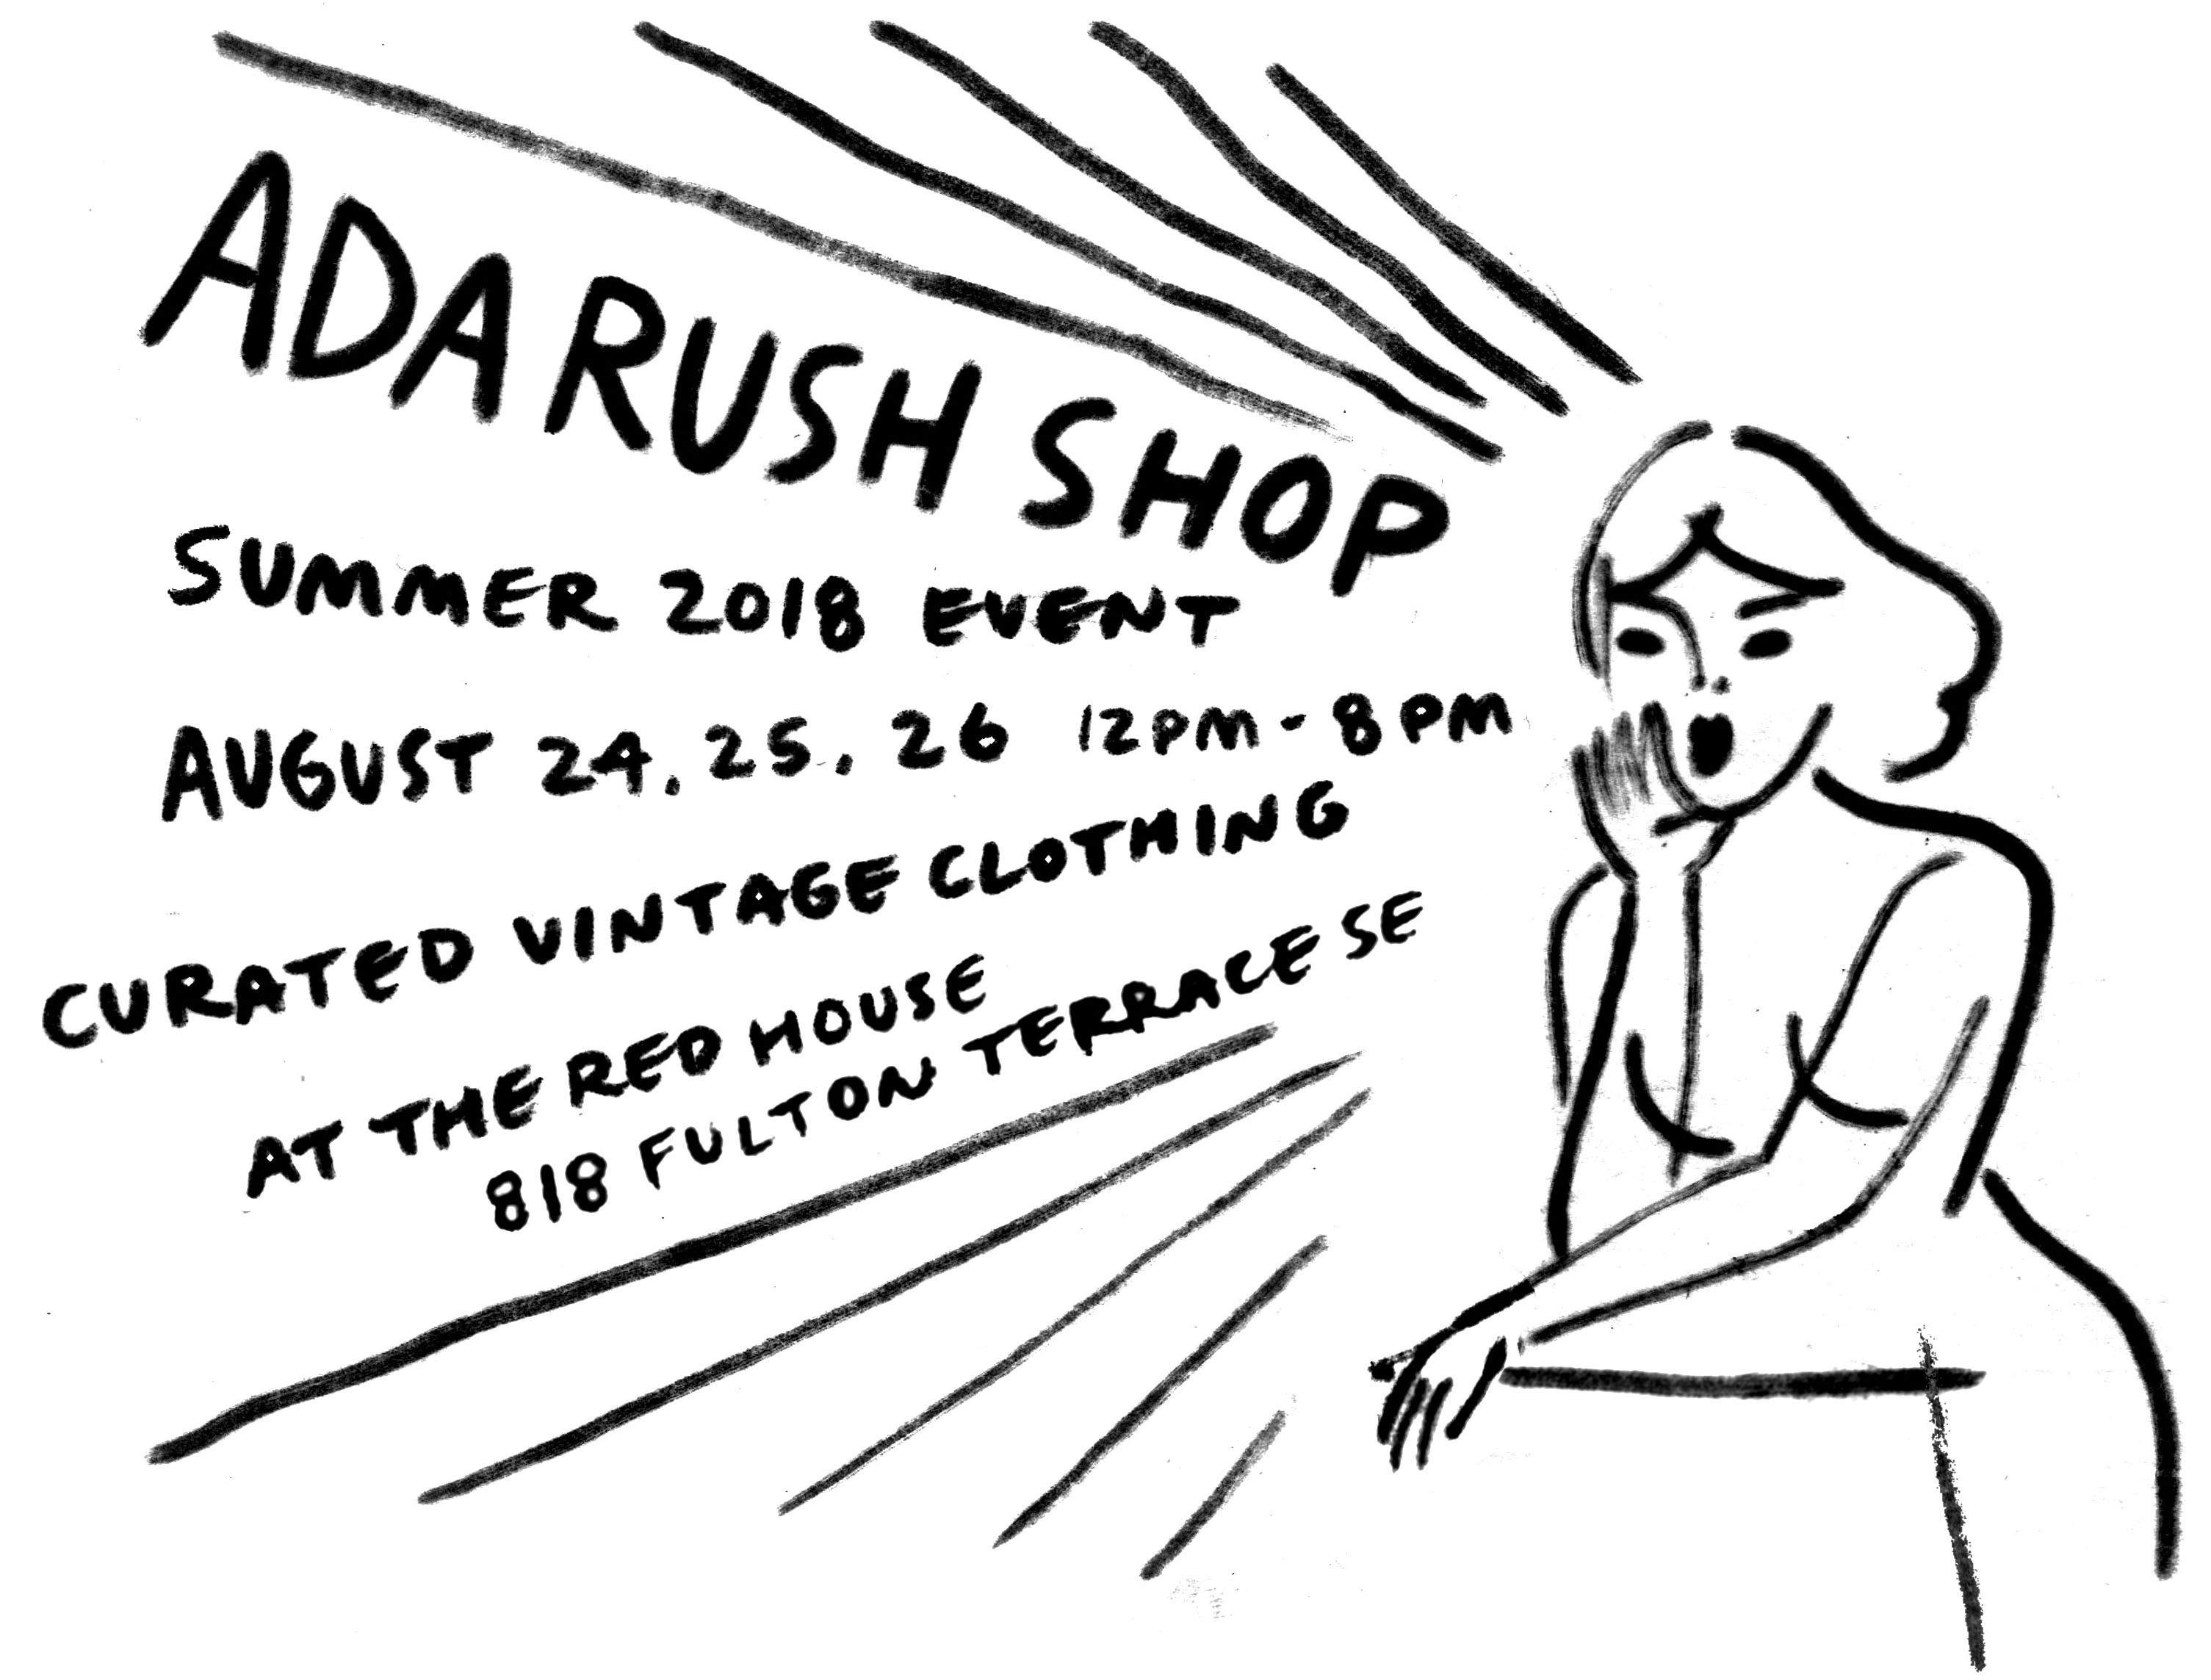 ADA RUSH SHOP
SUMMER 2018 EVENT
AUGUST 24, 25, 26 12PM-8PM
CURATED VINTAGE CLOTHING
AT THE RED HOUSE
818 FULTON TERRACE SE